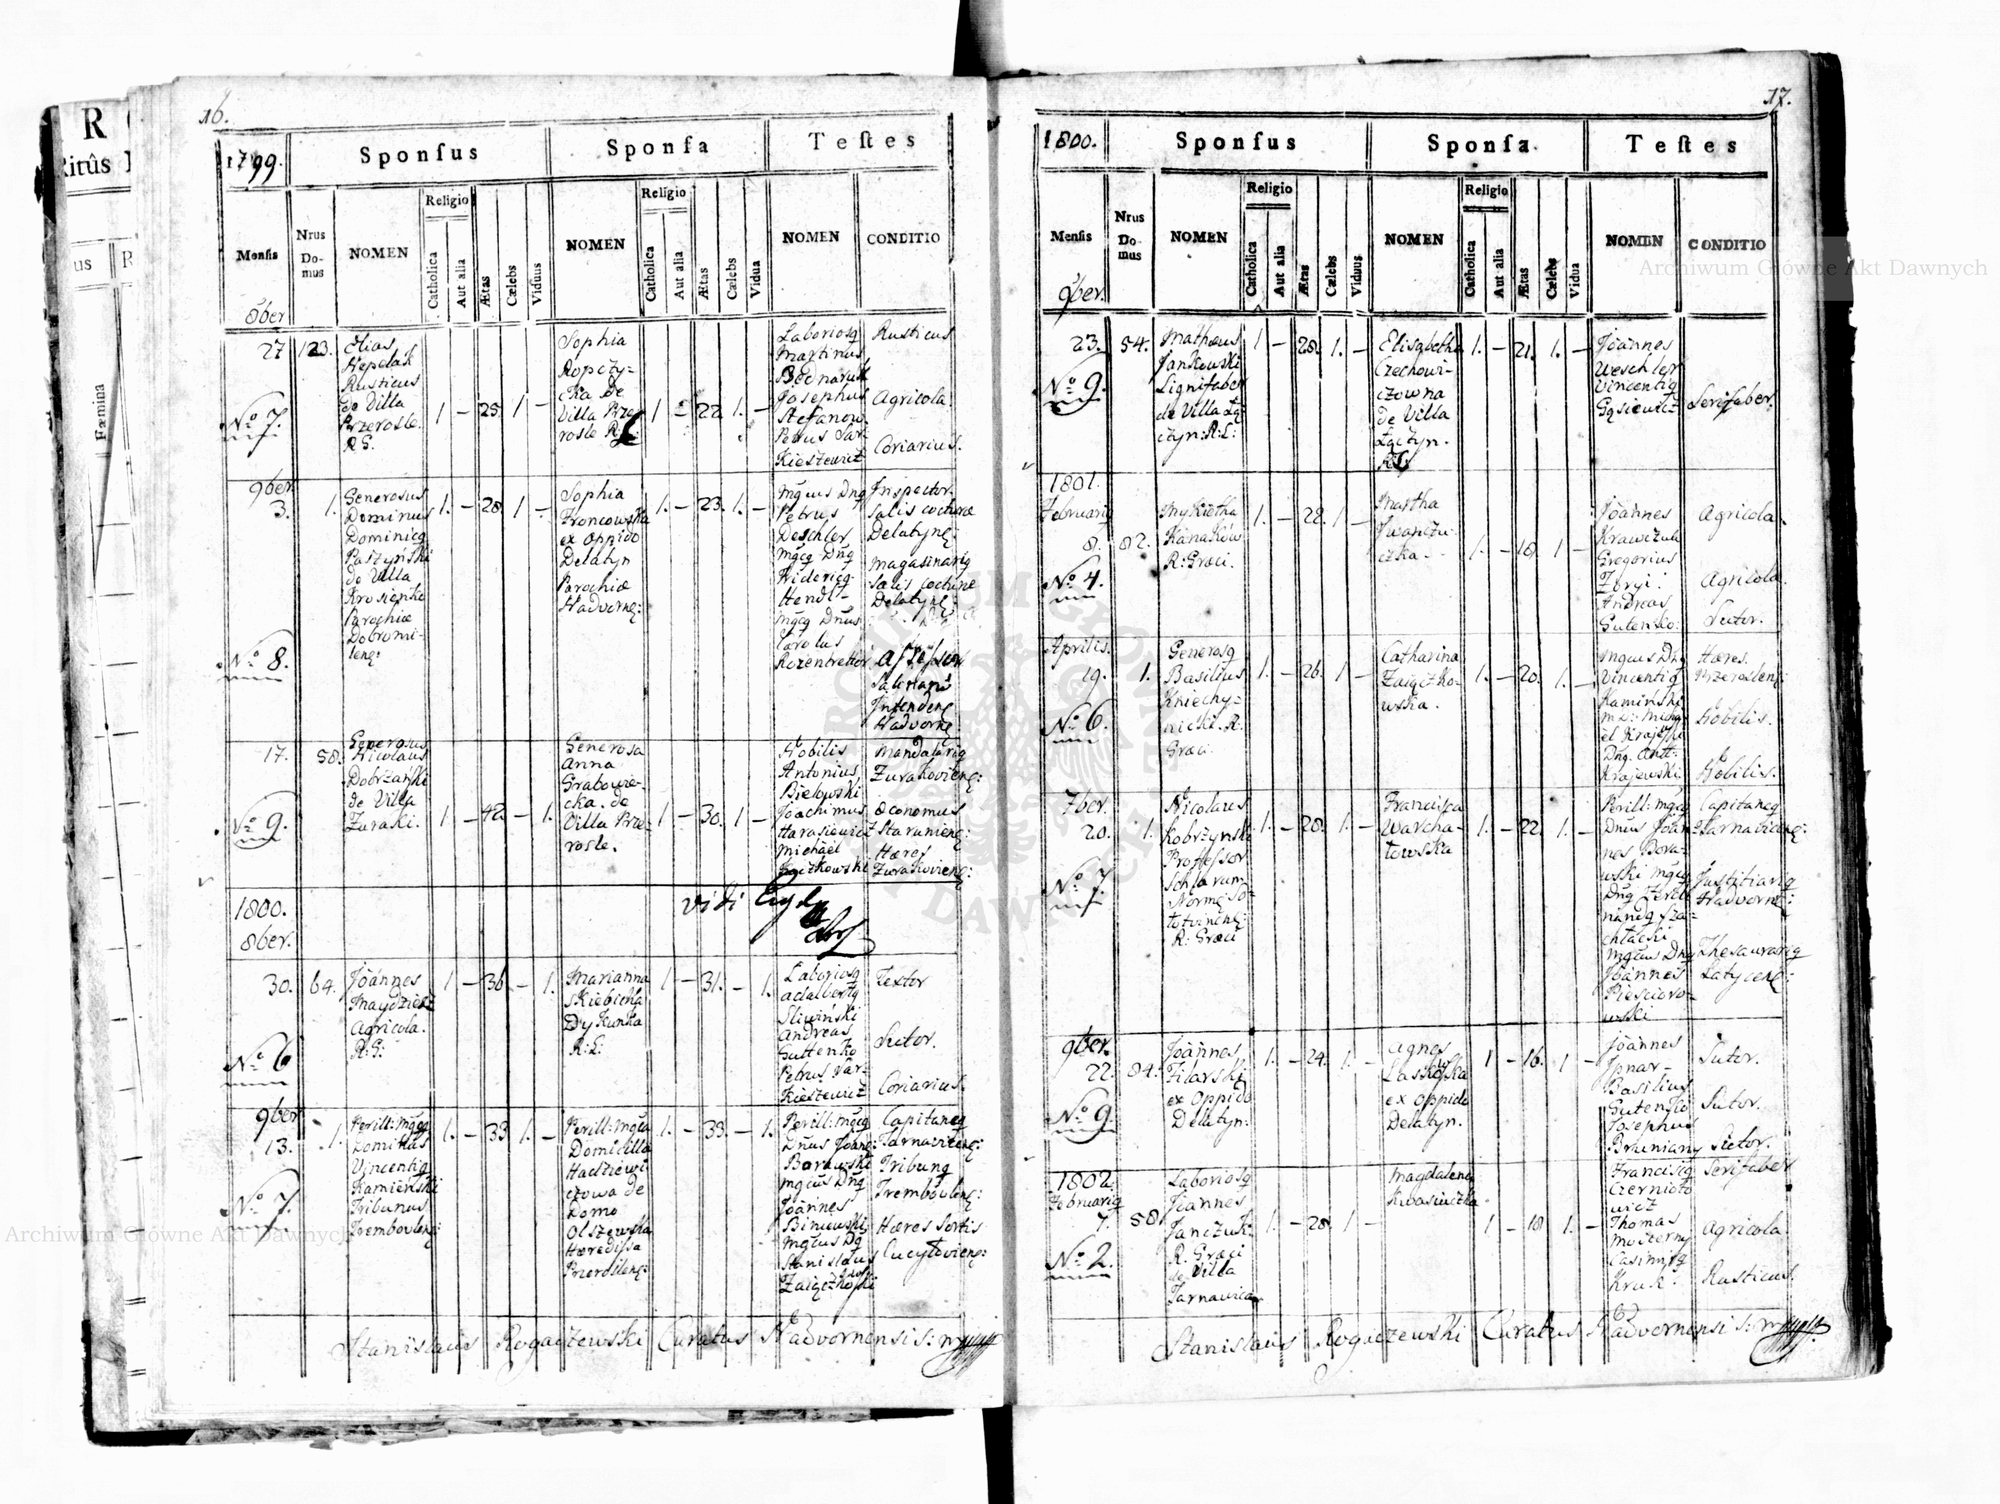 16.
1799.
Sponſus
Sponſa
Teſtes
Menſis
Nrus Domus
NOMEN
Religio
Catholica
Aut alia
Ætas
Cælebs
Viduus
NOMEN
Religio
Catholica
Aut alia
Ætas
Cælebs
Vidua
NOMEN
CONDITIO
8ber
27
No 7.
123.
Elias
Rusticus
de Villa
Przerosle.
R G.
1 – 25 1 –
Sophia
Ropczy=
cka de
Villa Prze
rosle R:L
1 – 22 1. –
Laboriosq
Martinus
Bednaruk
Josephus
Stefanow
Petrus Sar
Kieszewicz
Rusticus
Agricola.
Coriarius.
9ber
3.
No 8.
1.
Generosus
Dominus
Dominicq
de Villa
Krosienko
Parochiæ
Dobromi-
lenq:
1. – 28 1 –
Sophia
Froncowska
ex Oppido
Delatyn
Parochiæ
Nadvornq:
1. – 23. 1. –
Mgcus Dnq
Petrus
Deschler
Mgcq Dnq
Fridericq
Hendl-
Mgcq Dnus
Carolus
Inspector
Salis cocturæ
Delatynq:
Magasinariq
Salis cocturæ
Delatynq:
Assessor
Salinaris
Intendenq
Nadvornq
17.
No 9.
58.
Generosus
Nicolaus
Dobrzanski
de Villa
Zuraki.
1 – 42. – 1.
Generosa
Anna
Grabowie-
cka. de
Villa Prze-
rosle.
1 – 30. 1 –
Nobilis
Antonius
Bielowski
Joachimus
Harasiewicz
Michael
Mandatariq
Zurakovienq:
Œconomus
Starunienq:
Hæres
Zurakovienq:
1800.
8ber.
vidi
30.
No 6
64.
Joannes
Agricola.
R:G:
1 – 36 – 1.
Marianna
Skiebicka
Dykunka
R:L:
1 – 31. – 1.
Laboriosq
Adalbertq
Sliwinski
Andreas
Guttenko
Petrus Sar-
Kieszewicz
Textor
Sutor.
Coriarius.
9ber
13.
No 7.
1.
Perill: Mgcq
Dominus
Vincentiq
Kaminski
Tribunus
Trembovlenq:
1. – 33 1. –
Perill: Mgca
Domicilla
czowa de
Domo
Olszewska
Hæredissa
Przeroslenq:
1. – 33. – 1.
Perill: Mgcq
Dnus Joanq:
Borawski
Mgcus Dnq
Joannes
Biniewski
Mgcus Dq
Stanislaus
Capitaneq
Tarnavicenq:
Tribunq
Trembovlenq:
Hæres Sortis
Cucyłovienq:
Stanislaus Rogaczewski Curatus Nadvornensis: mpp
17.
1800.
Sponſus
Sponſa
Teſtes
Menſis
Nrus Domus
NOMEN
Religio
Catholica
Aut alia
Ætas
Cælebs
Viduus
NOMEN
Religio
Catholica
Aut alia
Ætas
Cælebs
Vidua
NOMEN
CONDITIO
9ber.
23.
No 9.
54.
Mathæus
Jankowski
Lignifaber
de Villa Łą
czyn: R: L:
1 – 28. 1. –
Elisabetha
Czechowi-
czowna
de Villa
Łączyn.
1. – 21. 1. –
Joannes
Weschler
Vincentiq
Gąsiewicz
Serifaber.
1801.
Februariq
8.
No 4.
82.
Mykietha
Kanaków
R: Græci.
1. – 28. 1 –
Martha
Iwanczu-
czka.
1. – 18. 1 –
Joannes
Krawczuk
Gregorius
Andreas
Gutenko:
Agricola.
Agricola.
Sutor.
Aprilis.
19.
No 6.
1.
Generosq
Basilius
Kniehy-
nicki. R.
Græci
1. – 26. 1 –
Catharina
Zaiączko-
wska.
1. – 20. 1. –
Mgcus Dnq
Vincentiq
Kaminski
Dnq. Ant:
Krajewski.
Hæres.
Przeroslenq:
Nobilis.
Nobilis.
7ber.
20.
No 7.
1.
Nicolaus
Kobrzynski
Professor
R: Græci
1. – 28. 1. –
Francisca
Warcha-
łowska
1. – 22. 1. –
Perill: Mgcq
Dnus Joan
nes Bora-
wski Mgcq
Dnq Ferdi
nandq Sza-
chłacki
Mgcus Dnq
Joannes
Pieścioro-
wski
Capitaneq
Tarnavicenq:
Justitiariq
Nadvornq:
Thesaurariq
Latycenq:
9ber.
22.
No 9.
84.
Joannes
Filarski
ex Oppido
Delatyn:
1. – 24. 1. –
Agnes
Laskoska
ex Oppido
Delatyn.
1 – 16. 1 –
Joannes
Ipnar-
Basilius
Gutenko
Josephus
Bruniany
Sutor.
Sutor.
Sutor.
1802.
Februariq
7.
No 2.
58.
Laboriosq
Joannes
Janczuk.
R. Græci
de Villa
Tarnavica
1. – 28 1 –
Magdalena
Kwasniczka
1 – 18 1. –
Franciscq
Czernioto
wicz
Thomas
Casimirq
Kruk.
Serifaber
Agricola
Rusticus.
Stanislaus Rogaczewski Curatus Nadvornensis: mpp
Archiwum Główne Akt Dawnych
Archiwum Główne Akt Dawnych